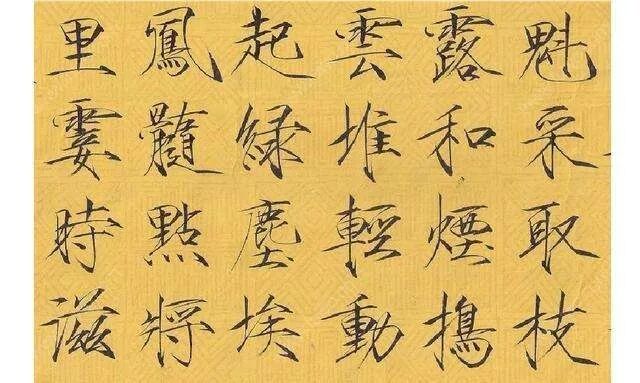 魁采取枝
露和煙搗
雲堆輕動
起綠塵埃
鳳髓點將
里霎時滋